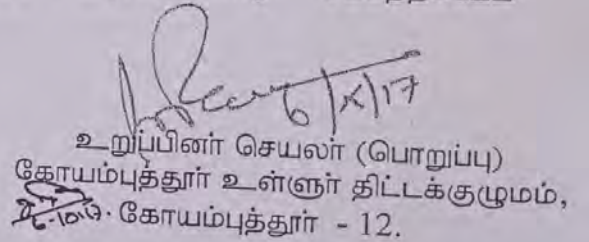 6/X/17
உறுப்பினர் செயலர் (பொறுப்பு)
கோயம்புத்தூர் உள்ளூர் திட்டக்குழுமம்,
6.10.17. கோயம்புத்தூர் - 12.